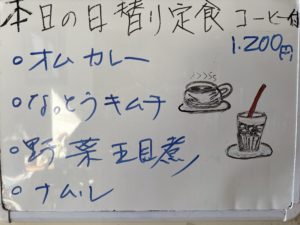 本日の日替り定食 コーヒー付
1.200円
○オムカレー
○なっとうキムチ
○野菜玉目煮
○ナムル